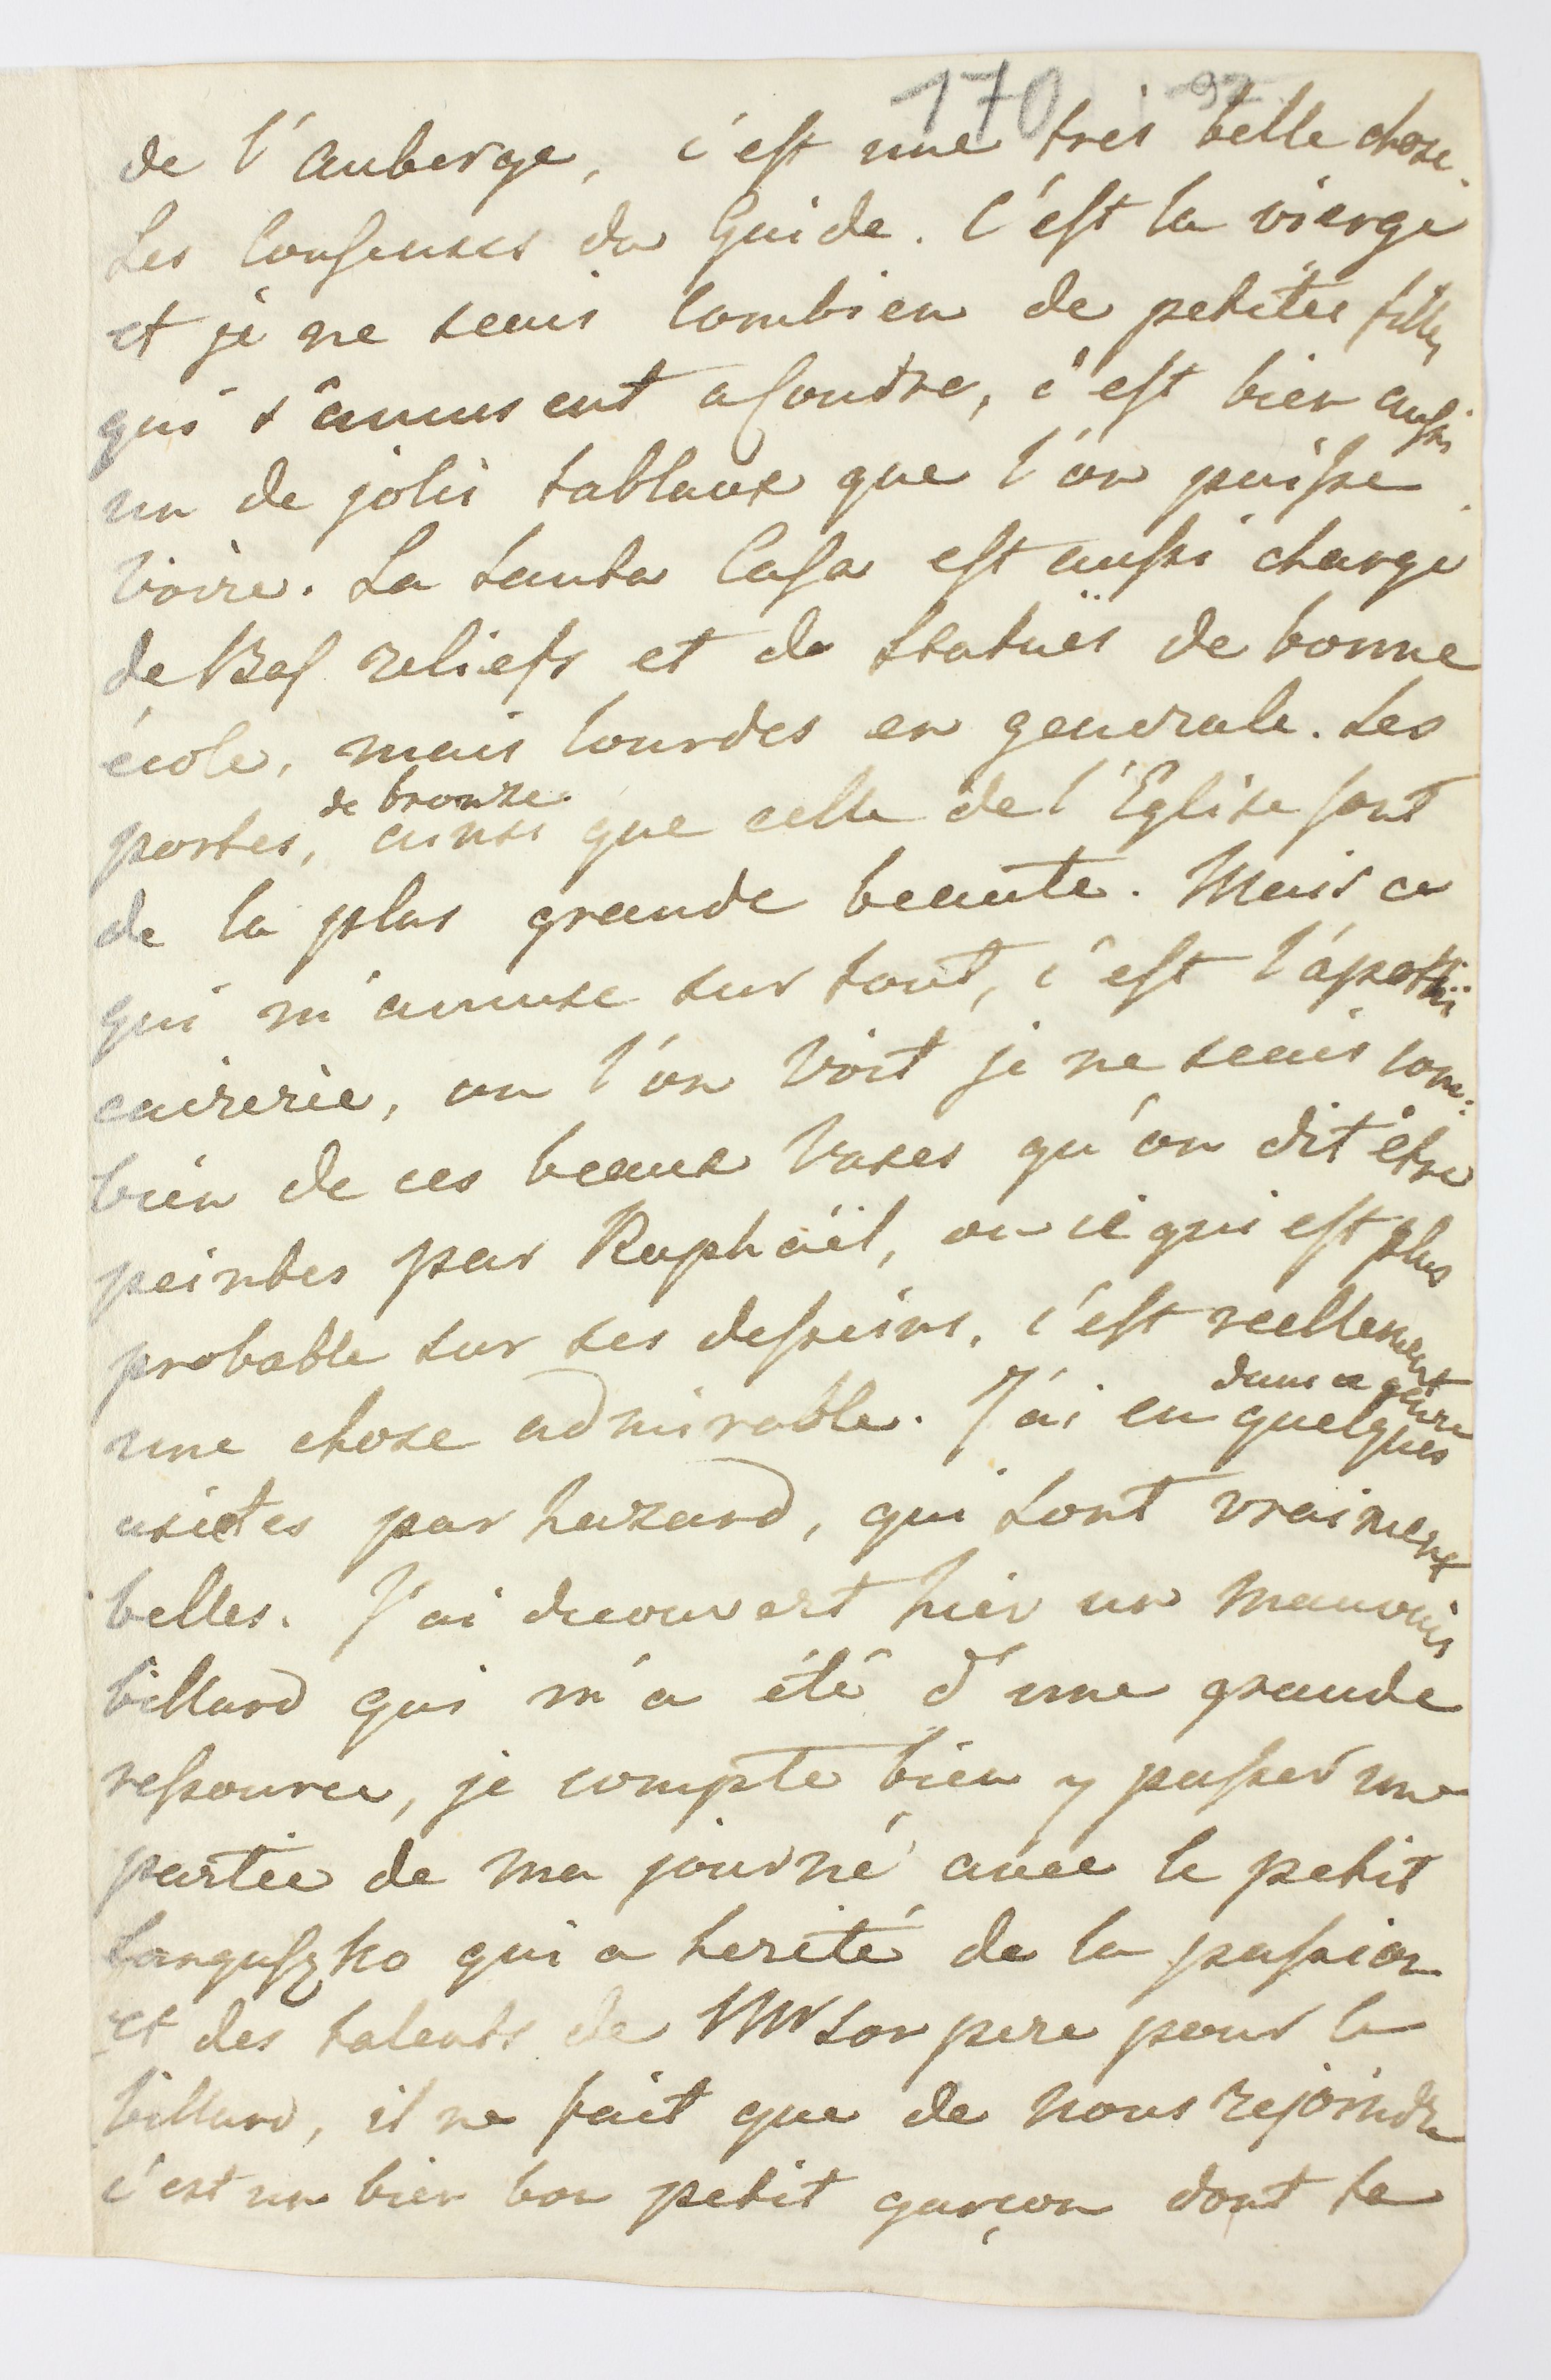 170 92
de l'auberge, c'est une tres belle chose.
Les Couseuses du Guide. C'est la vierge
et je ne scais combien de petites filles
qui s'amusent a coudre, c'est bien aussi
un de jolis tableaux que l'on puisse
voire. La Santa Casa est aussi charge
de Bas reliefs et de Statuës de bonne
école, mais lourdes en generale. Les
de bronze
portes, ainsi que celle de l'Eglise sont
de la plus grande beaute. Mais ce
qui m'amuse sur tout, c'est l'apotti
cairerie, ou l'on voit je ne scais com:
bien de ces beaux vases qu'on dit être
peintes par Raphaël, ou ce qui est plus
probable sur ses desseins. c'est reellement
dans ce genre
une chose admirable. J'ai eu quelques
asiettes par hazard, qui sont vraiment
belles. J'ai decouvert hier un mauvais
billard qui m'a été d'une grande
ressource, je compte bien y passer une
partie de ma journé avec le petit
Sanguszko qui a herité de la passion
et des talents de Mr son pere pour le
billard, il ne fait que de nous rejoindre
c'est un bien bon petit garçon dont la